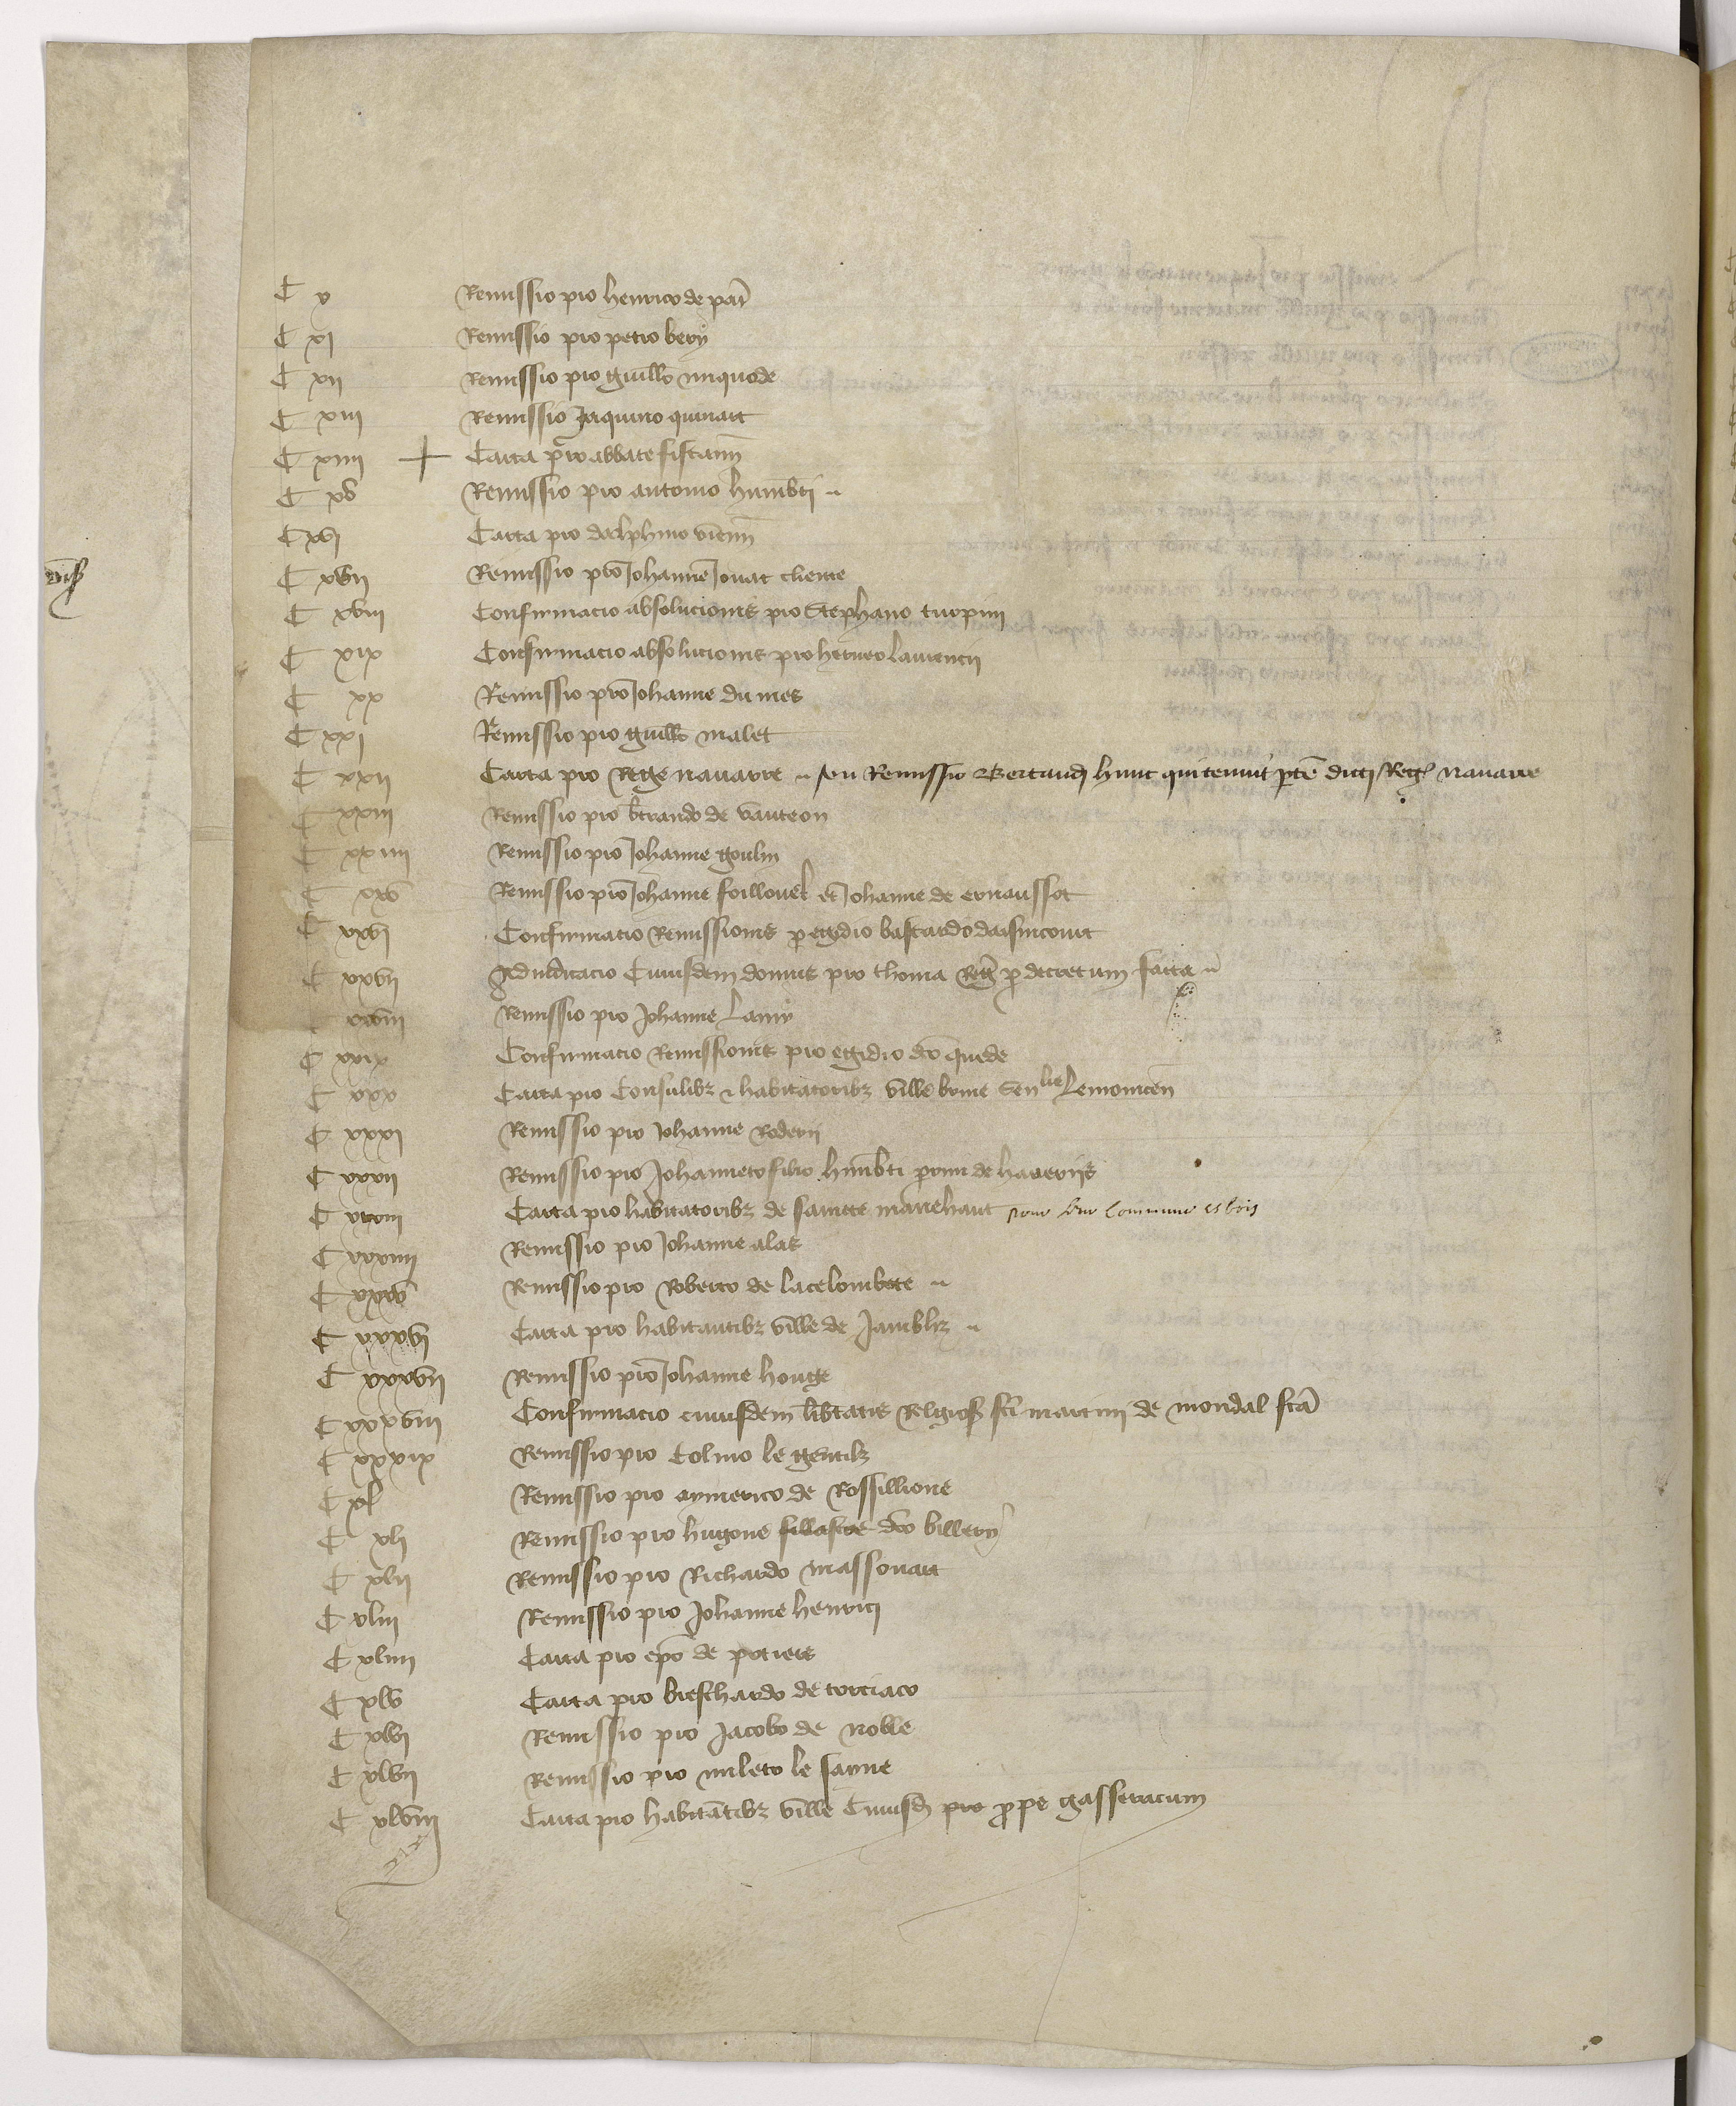 C x Remissio pro henrico de par̃
C xi Remissio pro petro bery
C xii Remissio pro guillo unquode
C xiii Remissio Jaquino quinart
C xiiii + Carta pro abbate fiscann̄
C xv Remissio pro antonio humb̄ti
C xvi Carta pro dalphino vienn̄
C xvii Remissio pro Johanne Jouat cliente
C xviii Confirmacio absolucionis pro Stephano turpini
C xix Confirmacio absolucionis pro herueo laurencii
C xx Remissio pro Johanne du mes
C xxi Remissio pro guillo malet
C xxii Carta pro Rege nauarre seu Remissio Bertrandi hunt qui tenuit p̄tē dicti Reg nauarre
C xxiii Remissio pro b̄trando de vauteon
C xxiiii Remissio pro Johanne goulin
C xxv Remissio pro Johanne foillouel et Johanne de ernausset
C xxvi Confirmacio Remissionis p egidio bastardo daisincourt
C xxvii Adiudicacio Cuiusdem domus pro thoma Reg̃ p decretum facta
C xxviii Remissio pro Johanne Lamy
C xxix Confirmacio Remissionis pro egidio dc̄o quede
C xxx Carta pro Consulibz & habitatoribz ville brive Sen lie Lemouicen̄
C xxxi Remissio pro Johanne Roderii
C xxxii Remissio pro Johanneto filio himb̄ti de haueriis
C xxxiii Carta pro habitatoribz de saincte manehaut pour leur commune es bois
C xxxiiii Remissio pro Johanne alas
C xxxv Remissio pro Roberto de lacelombete
C xxxvi Carta pro habitantibz ville de Jambliz
C xxxvii Remissio pro Johanne houge
C xxxviii Confirmacio cuiusdem lib̄tatis Religios sc̄i martini de mondal fcā
C xxxix Remissio pro Colino le gentilz
C xl Remissio pro aymerico de Rossillione
C xli Remissio pro hugone fillastre dc̄o billery
C xlii Remissio pro Richardo massouart
C xliii Remissio pro Johanne henrici
C xliiii Carta pro ep̄o de potiers
C xlv Carta pro brischardo de torciaco
C xlvi Remissio pro Jacobo de nolle
C xlvii Remissio pro mileto le sanne
C xlviii Carta pro habitātibz ville Cuiusd pro p̄pe gassenacum